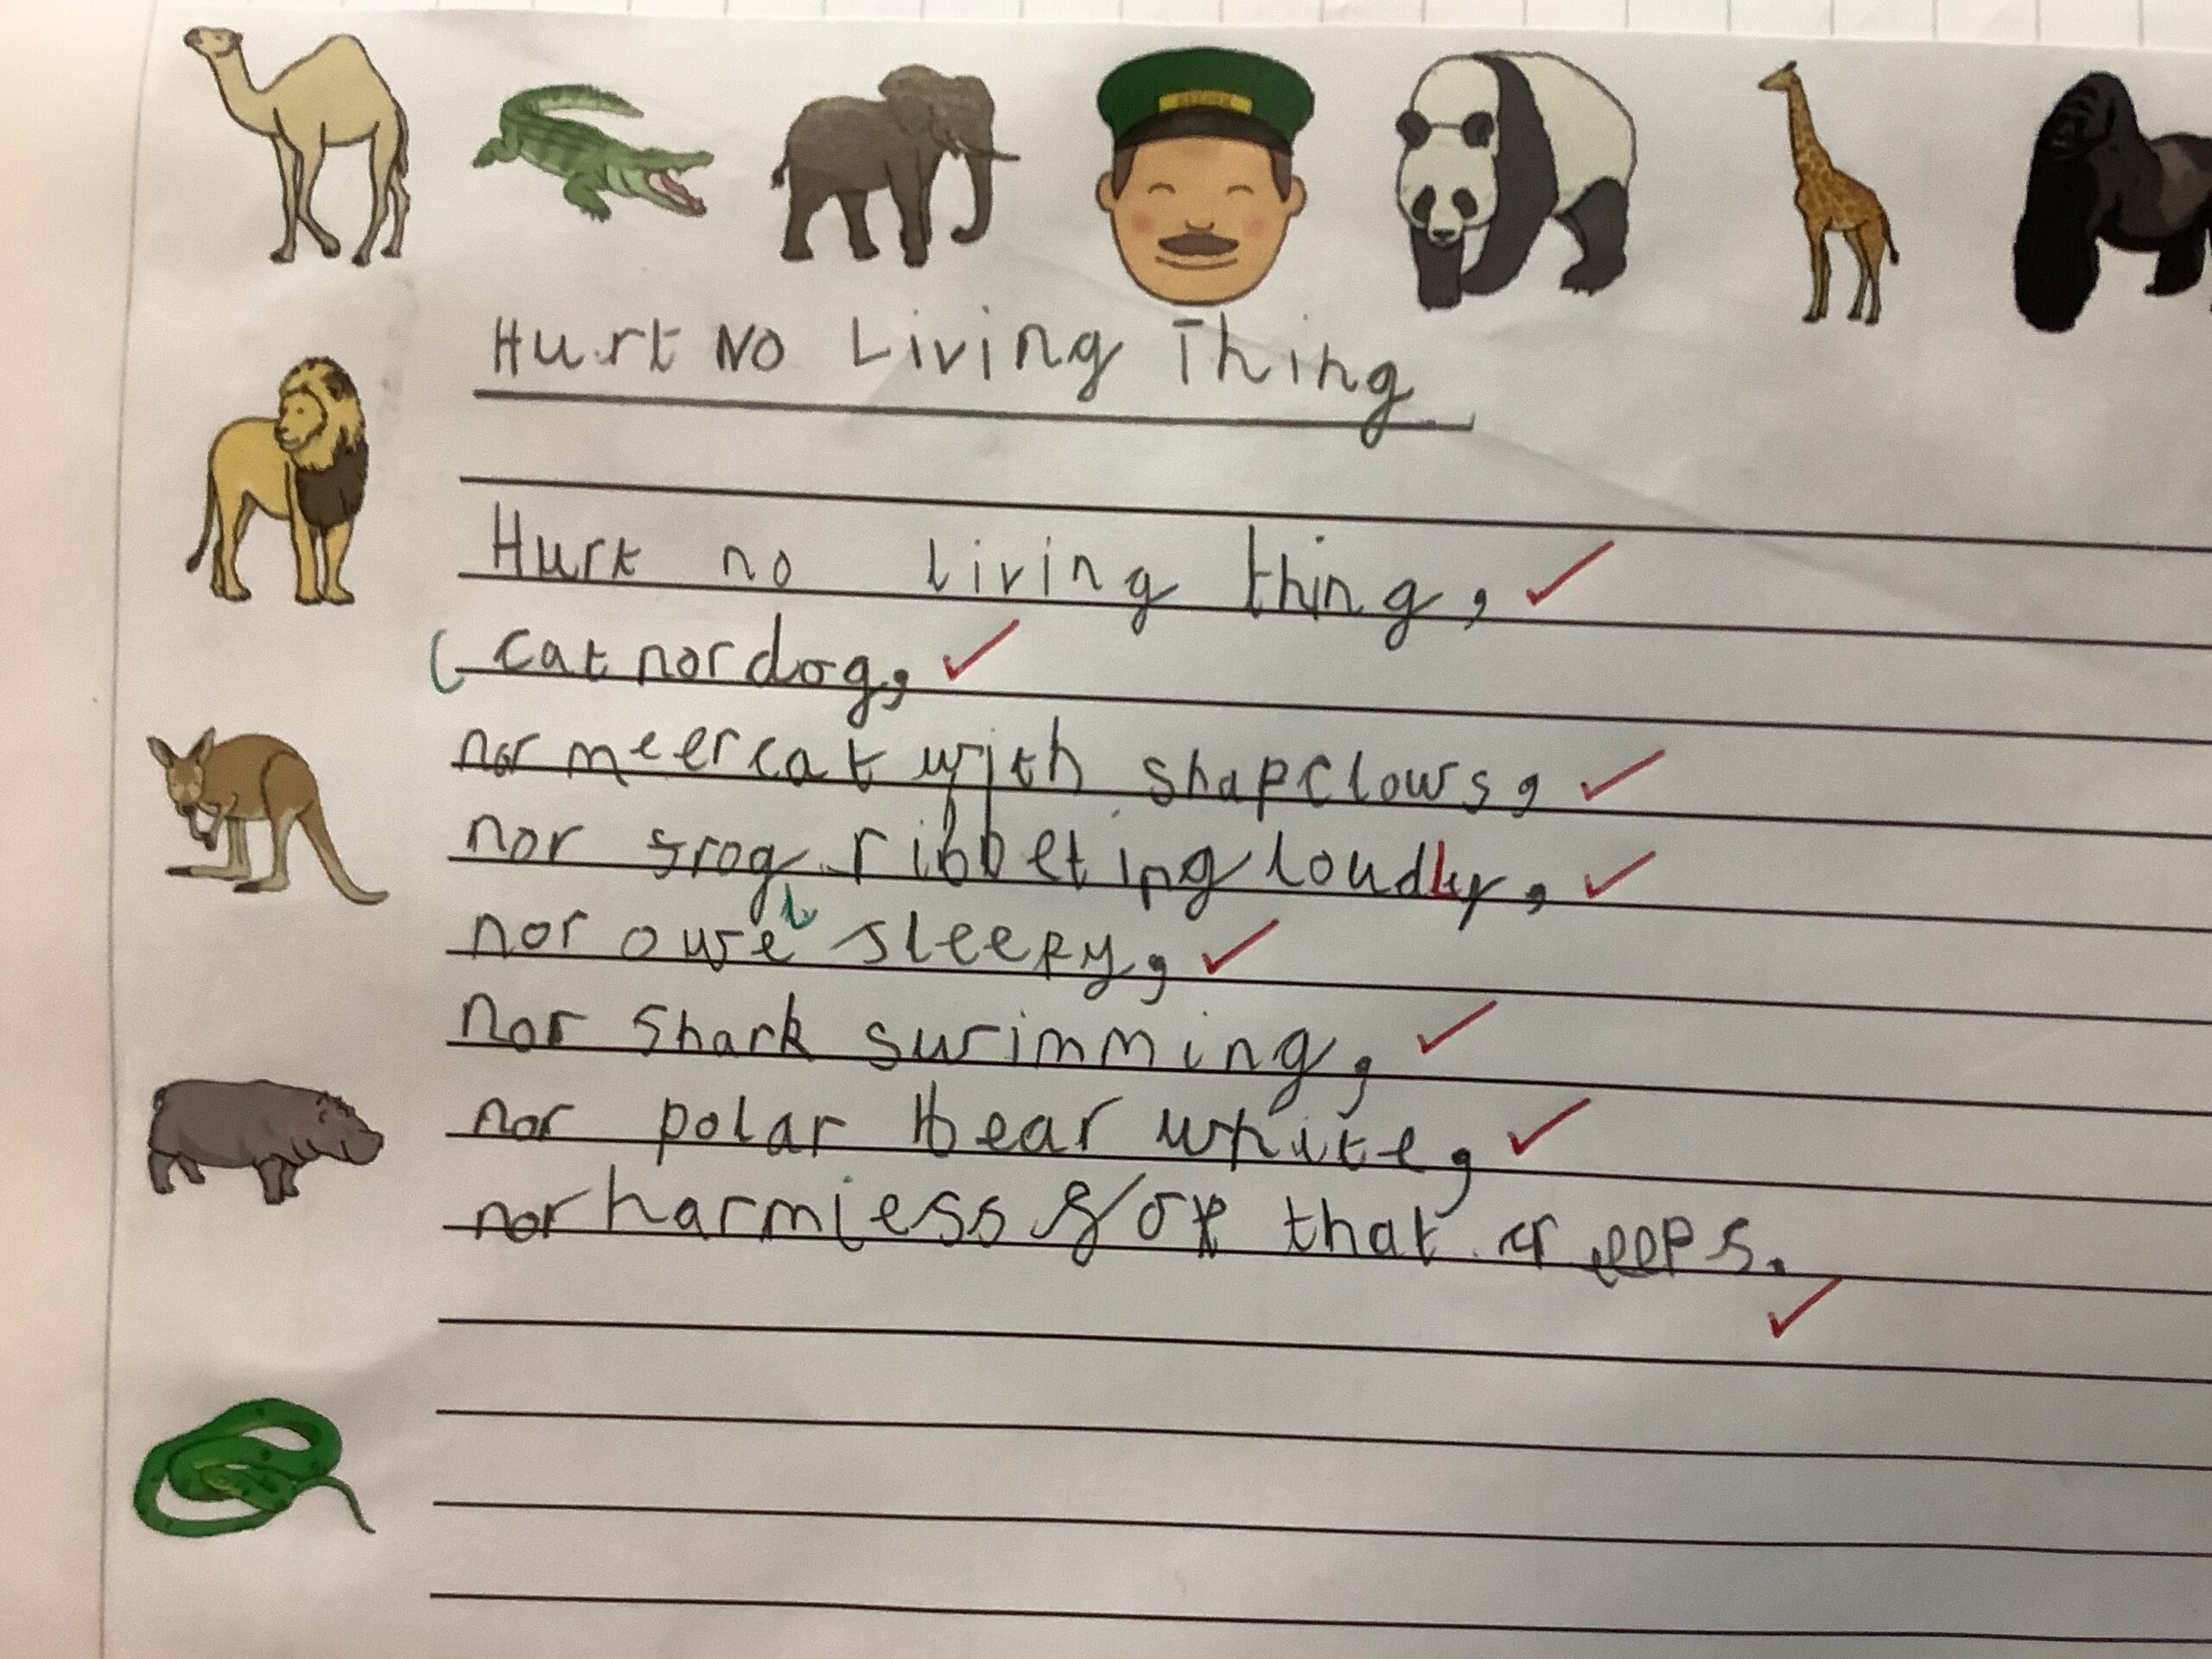 Hurt No Living Thing
Hurt no living thing,
cat nor dog,
nor meercat with shap clows,
nor frog ribbeting loudly,
nor owe sleepy,
nor shark swimming,
nor polar bear white,
nor harmless fox that creeps.